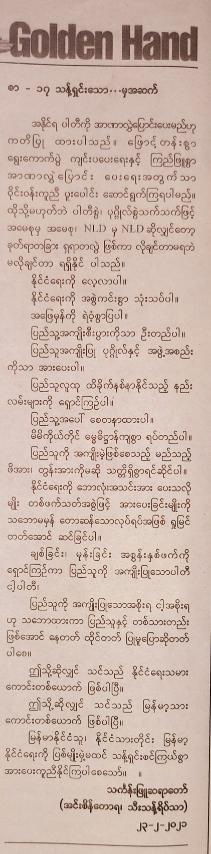 Golden Hand
စာ - ၁၇ သန့်ရှင်းသော...မှအဆက်
အနိုင်ရ ပါတီကို အာဏာလွှဲပြောင်းပေးမည်ဟု
ကတိပြု ထားပါသည်။ ဖြောင့်တန်းစွာ
ရွေးကောက်ပွဲ ကျင်းပပေးရေးနှင့် ကြည်ဖြူစွာ
အာဏာလွှဲပြောင်း ပေးရေးအတွက်သာ
ဝိုင်းဝန်းကူညီ ပူးပေါင်း ဆောင်ရွက်ကြရပါမည်။
ထိုသို့မဟုတ်ဘဲ ပါတီစွဲ၊ ပုဂ္ဂိုလ်စွဲသက်သက်ဖြင့်
အမေစုမှ အမေစု၊ NLD မှ NLD ဆိုလျှင်တော့
ခုတ်ရာတခြား ရှရာတလွဲ ဖြစ်ကာ လိုချင်တာမရဘဲ
မလိုချင်တာ ရရှိနိုင် ပါသည်။
နိုင်ငံရေးကို လေ့လာပါ။
နိုင်ငံရေးကို အစွဲကင်းစွာ သုံးသပ်ပါ။
အဖြေမှန်ကို ရဲဝံ့စွာပြပါ။
ပြည်သူ့အကျိုးစီးပွားကိုသာ ဦးတည်ပါ။
ပြည်သူ့အကျိုးပြု ပုဂ္ဂိုလ်နှင့် အဖွဲ့အစည်း
ကိုသာ အားပေးပါ။
ပြည်သူလူထု ထိခိုက်နစ်နာနိုင်သည့် နည်း
လမ်းများကို ရှောင်ကြဉ်ပါ။
ပြည်သူ့အပေါ် စေတနာထားပါ။
မိမိကိုယ်တိုင် ဓမ္မဓိဋ္ဌာန်ကျစွာ ရပ်တည်ပါ။
ပြည်သူကို အကျိုးမဲ့ဖြစ်စေသည့် မည်သည့်
ဖိအား၊ တွန်းအားကိုမဆို သတ္တိရှိစွာရင်ဆိုင်ပါ။
နိုင်ငံရေးကို ဘောလုံးအသင်းအား ပေးသလို
မျိုး တစ်ဖက်သတ်အစွဲဖြင့် အားပေးခြင်းမျိုးကို
သဘောမမှန် တောဆန်သောလုပ်ရပ်အဖြစ် ရှုမြင်
တတ်အောင် ဆင်ခြင်ပါ။
ချစ်ခြင်း၊ မုန်းခြင်း အစွန်းနှစ်ဖက်ကို
ရှောင်ကြဉ်ကာ ပြည်သူကို အကျိုးပြုသောပါတီ
ငါ့ပါတီ၊
ပြည်သူကို အကျိုးပြုသောအစိုးရ ငါ့အစိုးရ
ဟု သဘောထားကာ ပြည်သူနှင့် တစ်သားတည်း
ဖြစ်အောင် နေတတ် ထိုင်တတ် ပြုမူပြောဆိုတတ်
ပါစေ။
ဤသို့ဆိုလျှင် သင်သည် နိုင်ငံရေးသမား
ကောင်းတစ်ယောက် ဖြစ်ပါပြီ။
ဤသို့ဆိုလျှင် သင်သည် မြန်မာ့သား
ကောင်းတစ်ယောက် ဖြစ်ပါပြီ။
မြန်မာနိုင်ငံသူ၊ နိုင်ငံသားတိုင်း မြန်မာ့
နိုင်ငံရေးကို ပြစ်မျိုးမှဲ့မထင် သန့်ရှင်းစင်ကြယ်စွာ
အားပေးကူညီနိုင်ကြပါစေသော်။ ။
သင်္ကန်းဖြူဆရာတော်
(အင်းစိန်တောရ၊ သီးသန့်ရိပ်သာ)
၂၃-၂-၂၀၂၁